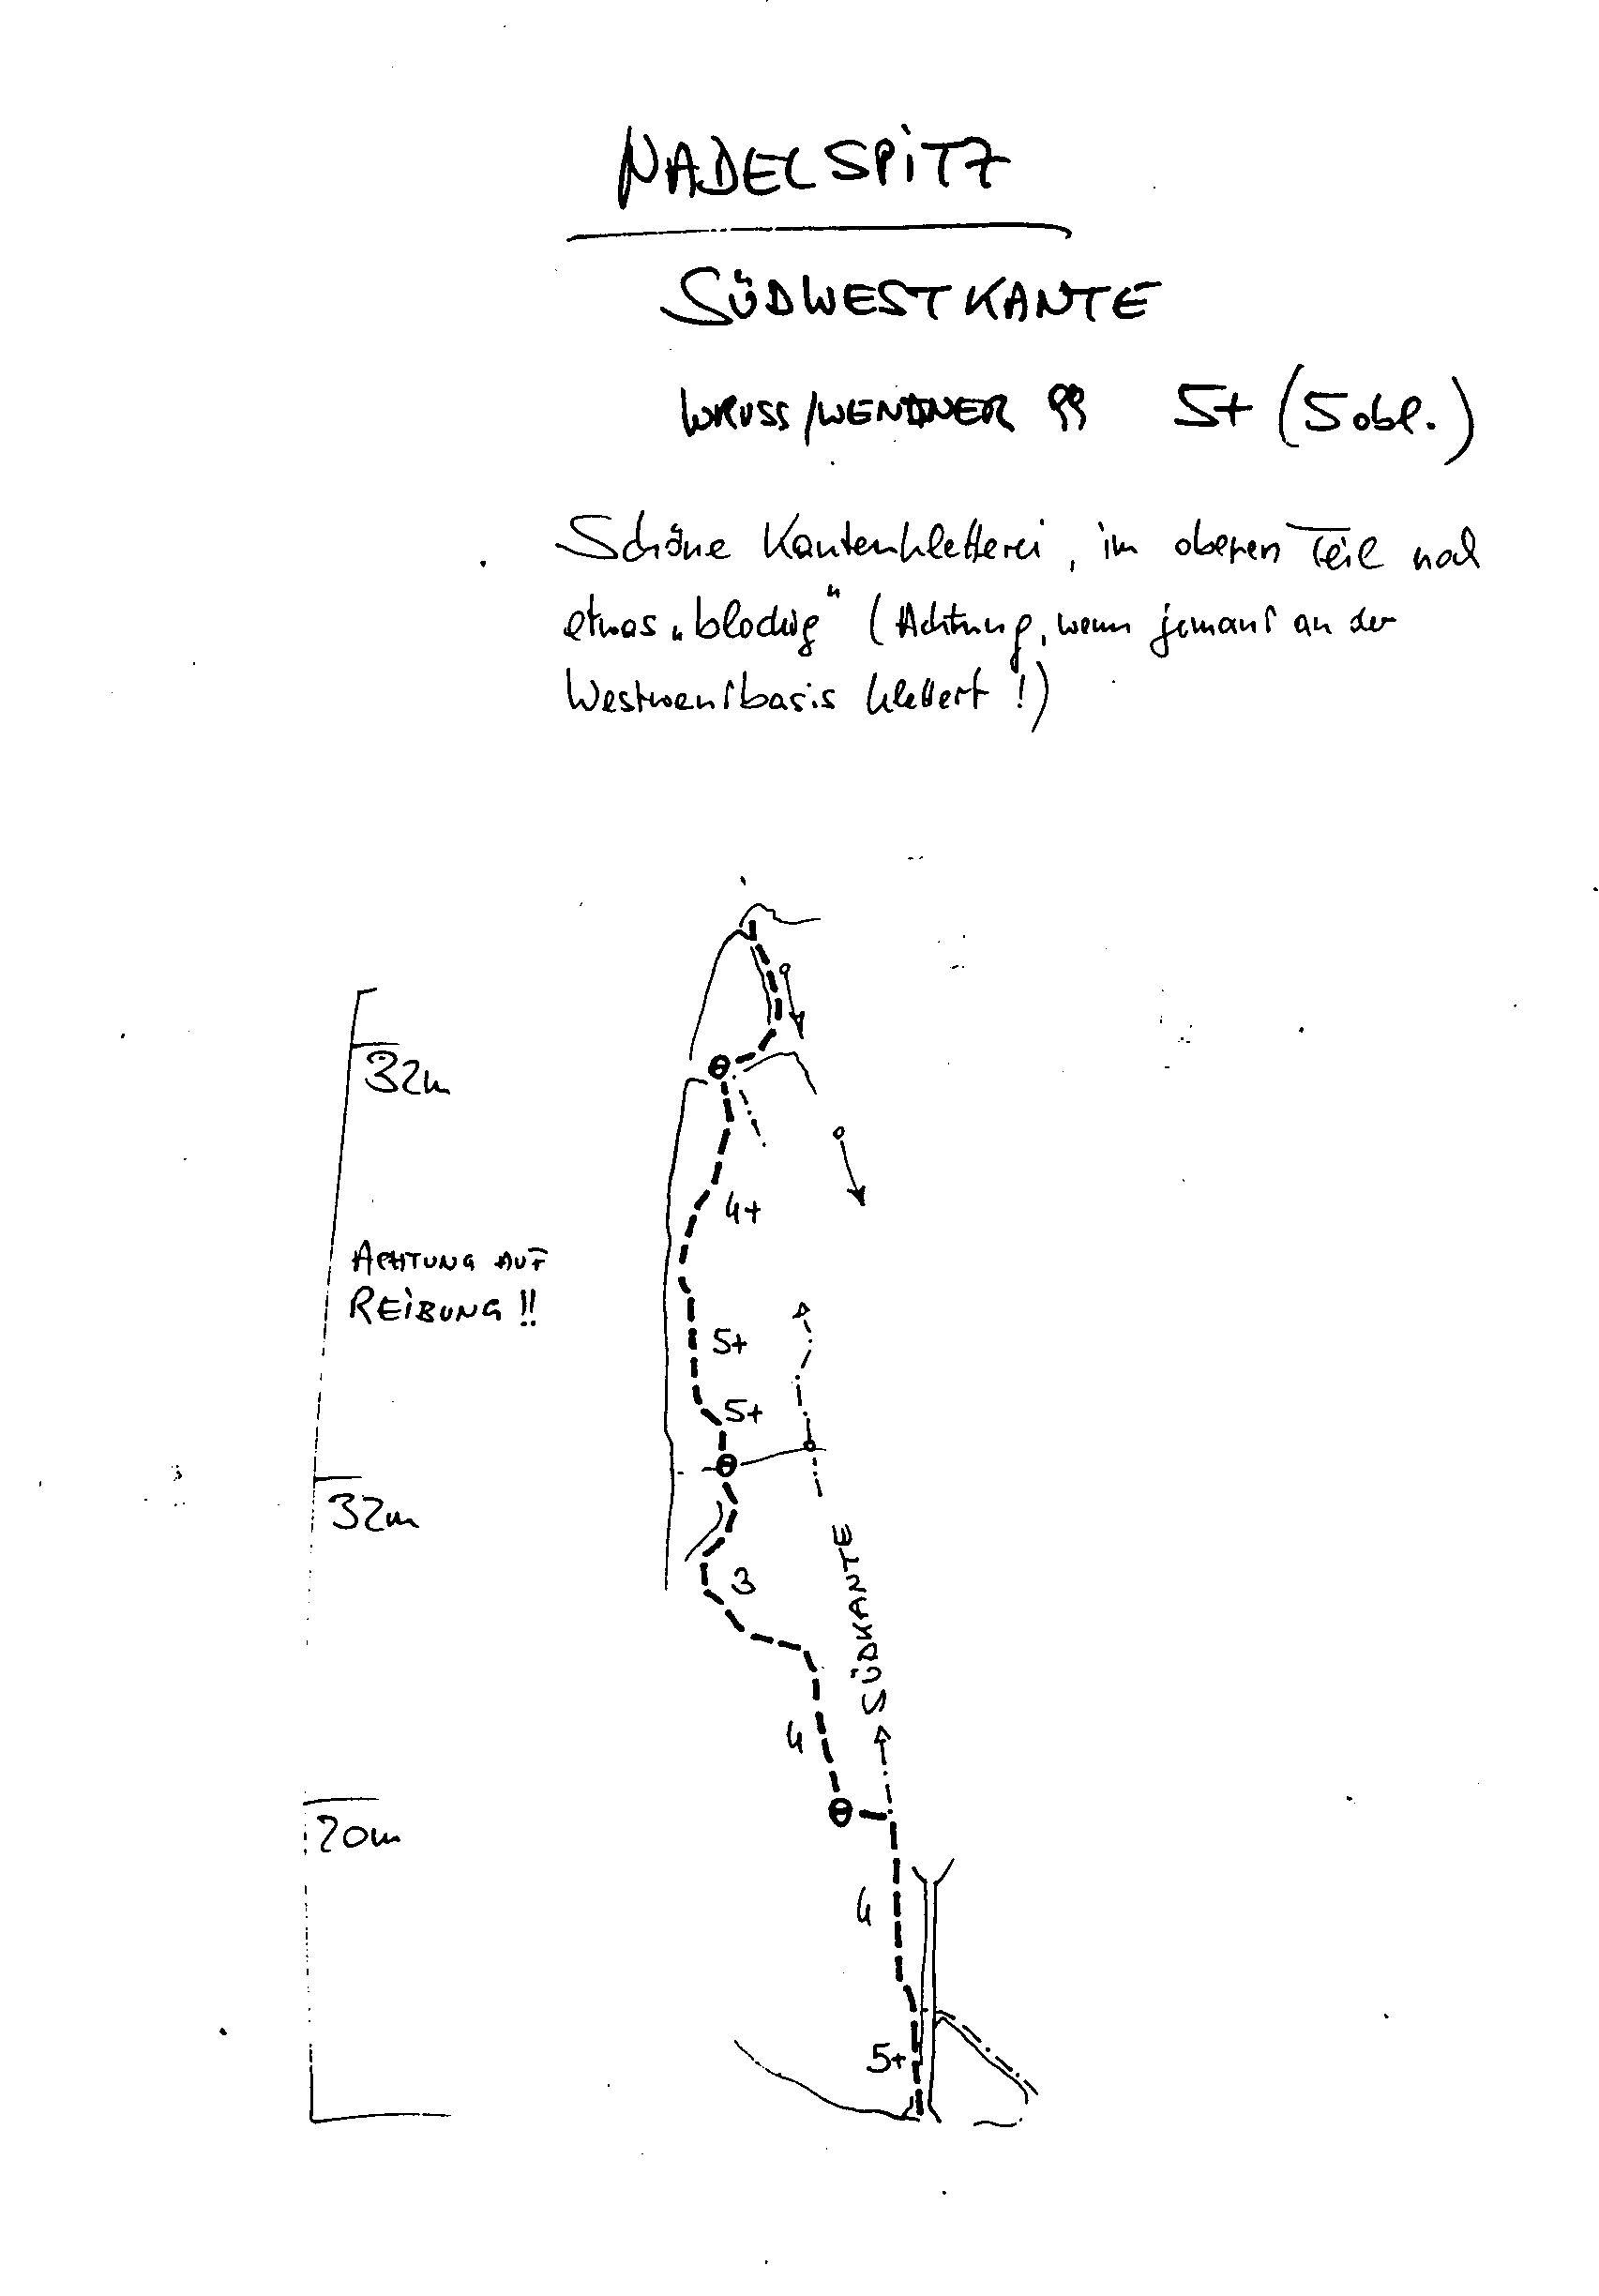 NADELSPITZ
SÜDWESTKANTE
WRUSS/WENDNER 99 5+ (5 obl.)
Schöne Kantenkletterei, im oberen Teil noch
etwas „blockig“ (Achtung, wenn jemand an der
Westwandbasis klettert!)
32m
4+
ACHTUNG AUF
REIBUNG!!
5+
5+
32m
3
SÜDKANTE
4
20m
4
5+